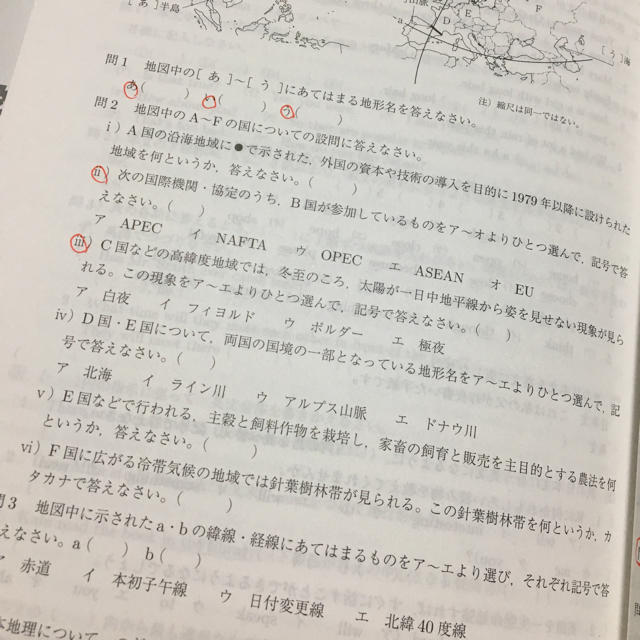 [あ]半島
山脈
a
D
F
[う]海
注）縮尺は同一ではない。
問1 地図中の[あ]～[う]にあてはまる地形名を答えなさい。
あ( ) い( ) う( )
問2 地図中のA～Fの国についての設問に答えなさい。
ⅰ）A国の沿海地域に●で示された，外国の資本や技術の導入を目的に1979年以降に設けられた
地域を何というか，答えなさい。( )
ⅱ）次の国際機関・協定のうち，B国が参加しているものをア～オよりひとつ選んで，記号で答
えなさい。( )
ア APEC イ NAFTA ウ OPEC エ ASEAN オ EU
ⅲ）C国などの高緯度地域では，冬至のころ，太陽が一日中地平線から姿を見せない現象が見ら
れる。この現象をア～エよりひとつ選んで，記号で答えなさい。( )
ア 白夜 イ フィヨルド ウ ポルダー エ 極夜
ⅳ）D国・E国について，両国の国境の一部となっている地形名をア～エよりひとつ選んで，記
号で答えなさい。( )
ア 北海 イ ライン川 ウ アルプス山脈 エ ドナウ川
ⅴ）E国などで行われる，主穀と飼料作物を栽培し，家畜の飼育と販売を主目的とする農法を何
というか，答えなさい。( )
ⅵ）F国に広がる冷帯気候の地域では針葉樹林帯が見られる。この針葉樹林帯を何というか，カ
タカナで答えなさい。( )
問3 地図中に示されたa・bの緯線・経線にあてはまるものをア～エより選び，それぞれ記号で答
えなさい。a( ) b( )
ア 赤道 イ 本初子午線 ウ 日付変更線 エ 北緯40度線
本地理について，